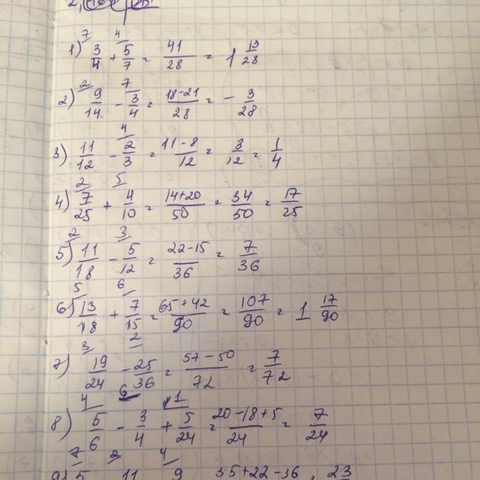 1) 7/ 3/4 + 4/ 5/7 = 41/28 = 1 13/28
2) 2/ 9/14 - 7/ 3/4 = 18-21/28 = - 3/28
3) 11/12 - 4/ 2/3 = 11-8/12 = 3/12 = 1/4
4) 2/ 7/25 + 5/ 4/10 = 14+20/50 = 34/50 = 17/25
5) 2/ 11/18 - 3/ 5/12 = 22-15/36 = 7/36
6) 5/ 13/18 + 6/ 7/15 = 65+42/90 = 107/90 = 1 17/90
7) 3/ 19/24 - 2/ 25/36 = 57-50/72 = 7/72
8) 4/ 5/6 - 6/ 3/4 + 1/ 5/24 = 20-18+5/24 = 7/24
7/ 5 2/ 11 4/ 9 35+22-36 = 23